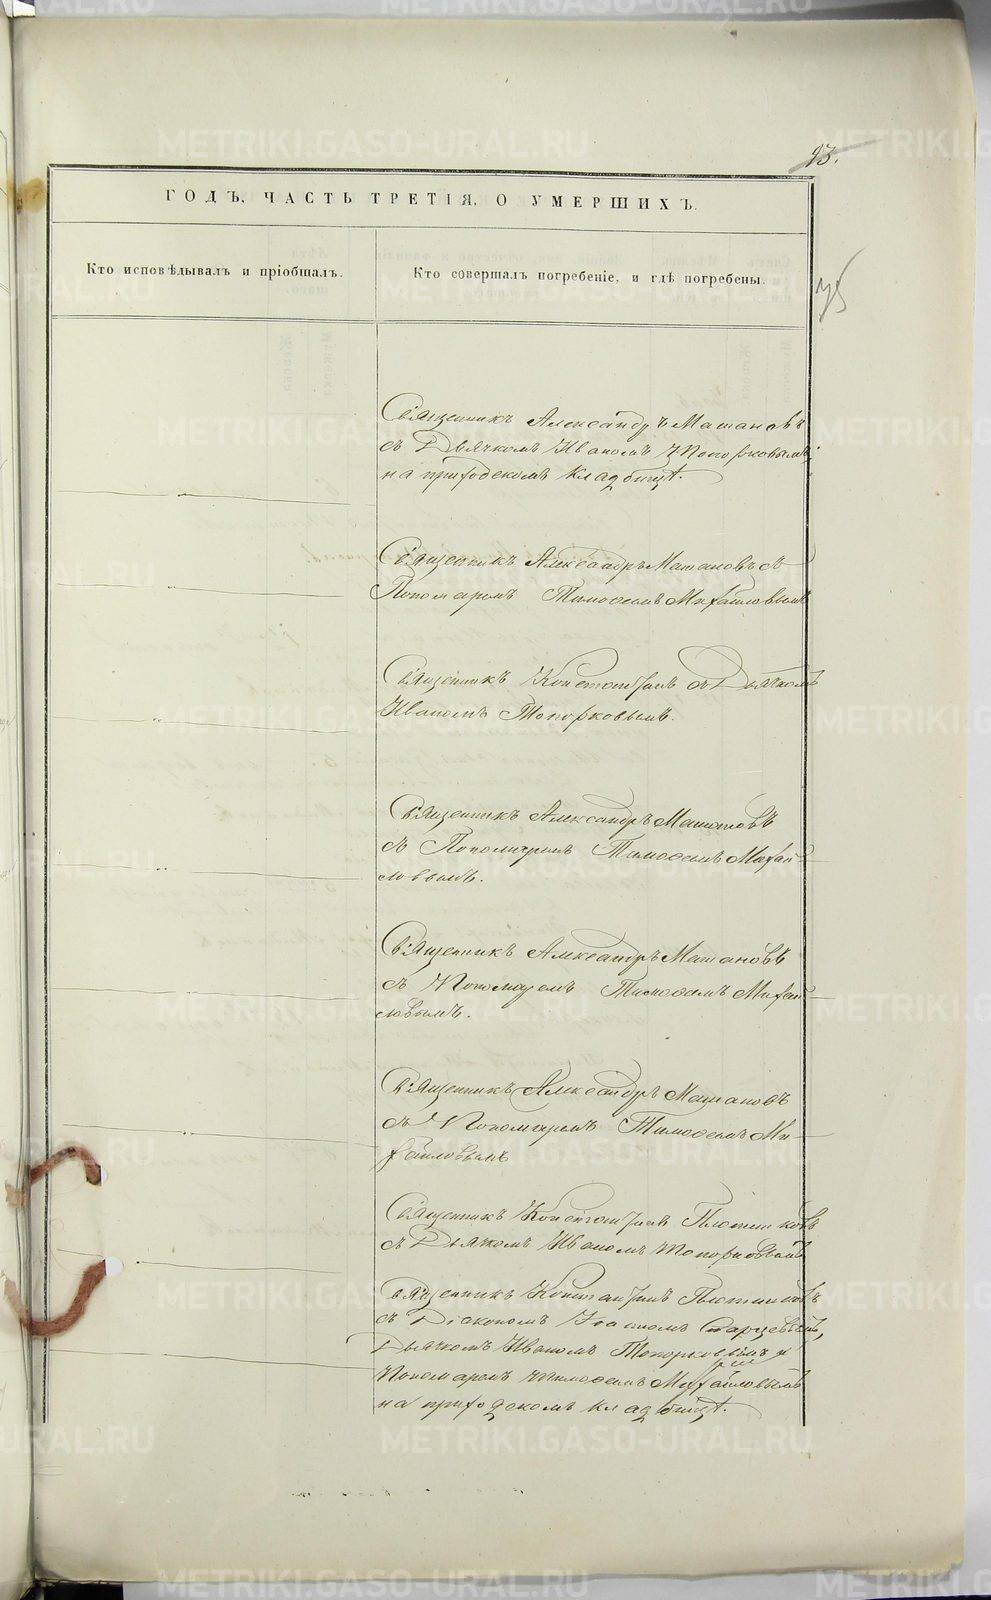 93.
ГОДЪ, ЧАСТЬ ТРЕТІЯ, О УМЕРШИХЪ.
Кто исповѣдывалъ и пріобщалъ.
Кто совершалъ погребеніе, и гдѣ погребены.
Священникъ Александръ Матановъ
съ Дьячкомъ Иваномъ Топорковымъ
на приходскомъ кладбищѣ.
Священникъ Александръ Матановъ съ
Пономаремъ Тимофеемъ Михайловымъ
Священникъ Константинъ съ Дьячкомъ
Иваномъ Топорковымъ.
Священникъ Александръ Матановъ
съ Пономаремъ Тимофеемъ Михай-
ловымъ.
Священникъ Александръ Матановъ
съ Пономаремъ Тимофеемъ Михай-
ловымъ.
Священникъ Александръ Матановъ
съ Пономаремъ Тимофеемъ Ми-
хайловымъ
Священникъ Константинъ Плотниковъ
съ Дьячкомъ Иваномъ Топорковымъ
Священникъ Константинъ Плотниковъ
съ Діакономъ Старцевымъ,
Дьячкомъ Иваномъ Топорковымъ и
Пономаремъ Тимофеемъ Михайловымъ
на приходскомъ кладбищѣ.
METRIKI.GASO-URAL.RU